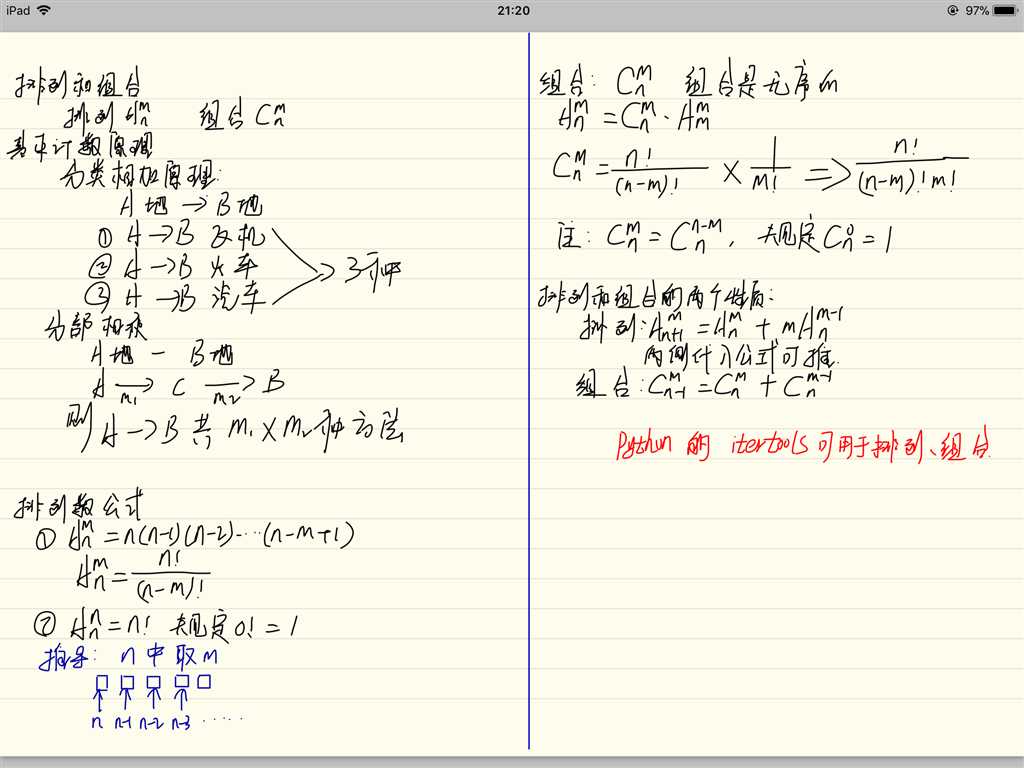 iPad
21:20
97%
排列和组合
排列 A_n^m 组合 C_n^m
基本计数原理
分类相加原理:
A地 → B地
① A → B 飞机
② A → B 火车
③ A → B 汽车
⇒ 3种
分部相乘
A地 - B地
A →(m1) C →(m2) B
则 A → B 共 m1 × m2 种方法
排列数公式
① A_n^m = n(n-1)(n-2)…(n-m+1)
A_n^m = n!/(n-m)!
② A_n^n = n! 规定 0! = 1
推导: n 中 取 m
□ □ □ □ □
↑ ↑ ↑ ↑
n n-1 n-2 n-3 ……
组合: C_n^m 组合是无序的
A_n^m = C_n^m · A_m^m
C_n^m = n!/(n-m)! × 1/m! ⇒ n!/(n-m)!m!
注: C_n^m = C_n^{n-m}, 规定 C_n^0 = 1
排列和组合的两个性质:
排列: A_{n+1}^m = A_n^m + mA_n^{m-1}
两侧代入公式可推.
组合: C_{n-1}^m = C_n^m + C_n^{m-1}
Python 的 itertools 可用于排列、组合.